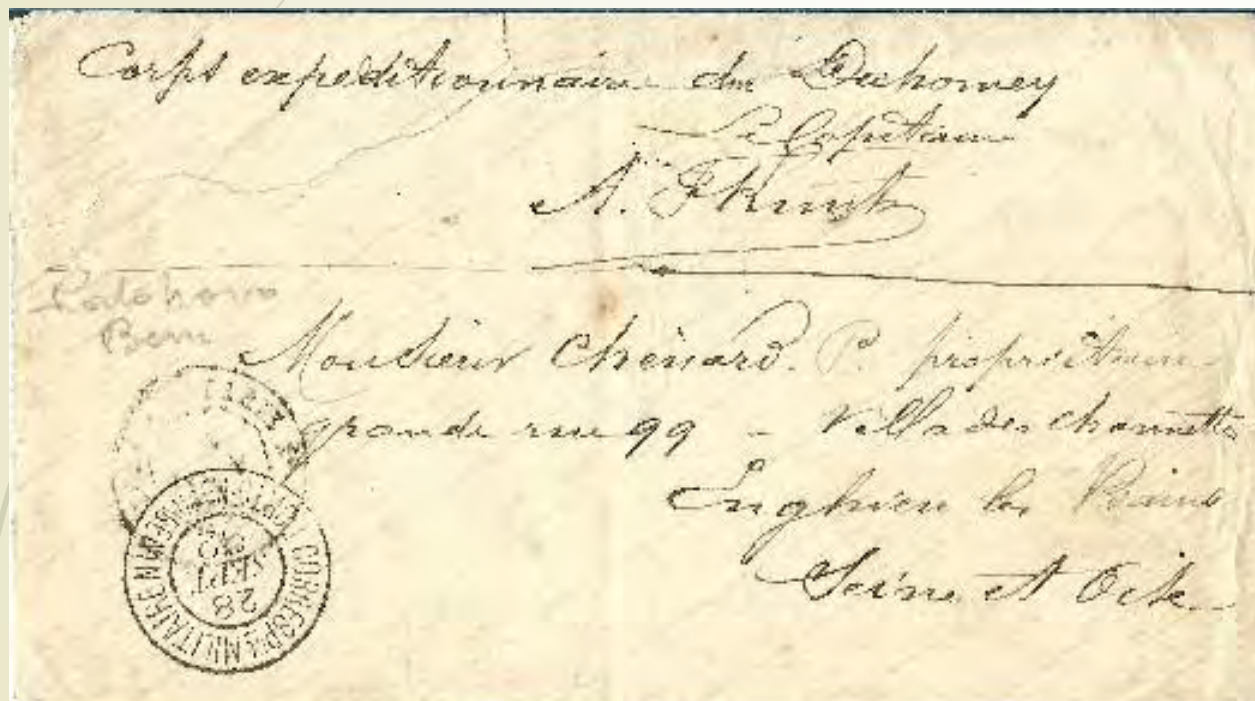 Corps expéditionnaire du Dahomey
Le Capitaine
A.
Monsieur Chénard. P. propriétaire
grande rue 99 - Villa des Charmettes
Enghien les Bains
Seine et Oise
CORRESP. MILITAIRE
28
SEPT
92